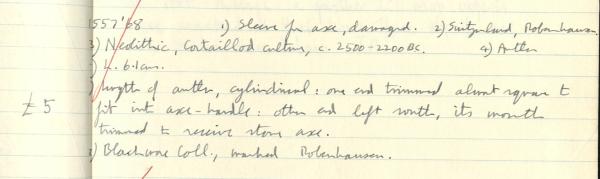 1557'68 1) Sleeve for axe, damaged. 2) Switzerland, Robenhausen.
3) Neolithic, Cortaillod culture, c. 2500-2200 BC. 4) Antler
5) L. 6.1 cms.
length of antler, cylindrical: one end trimmed almost square to
£5 fit into axe-handle: other end left with, its mouth
trimmed to receive stone axe.
) Blackmore Coll., marked Robenhausen.